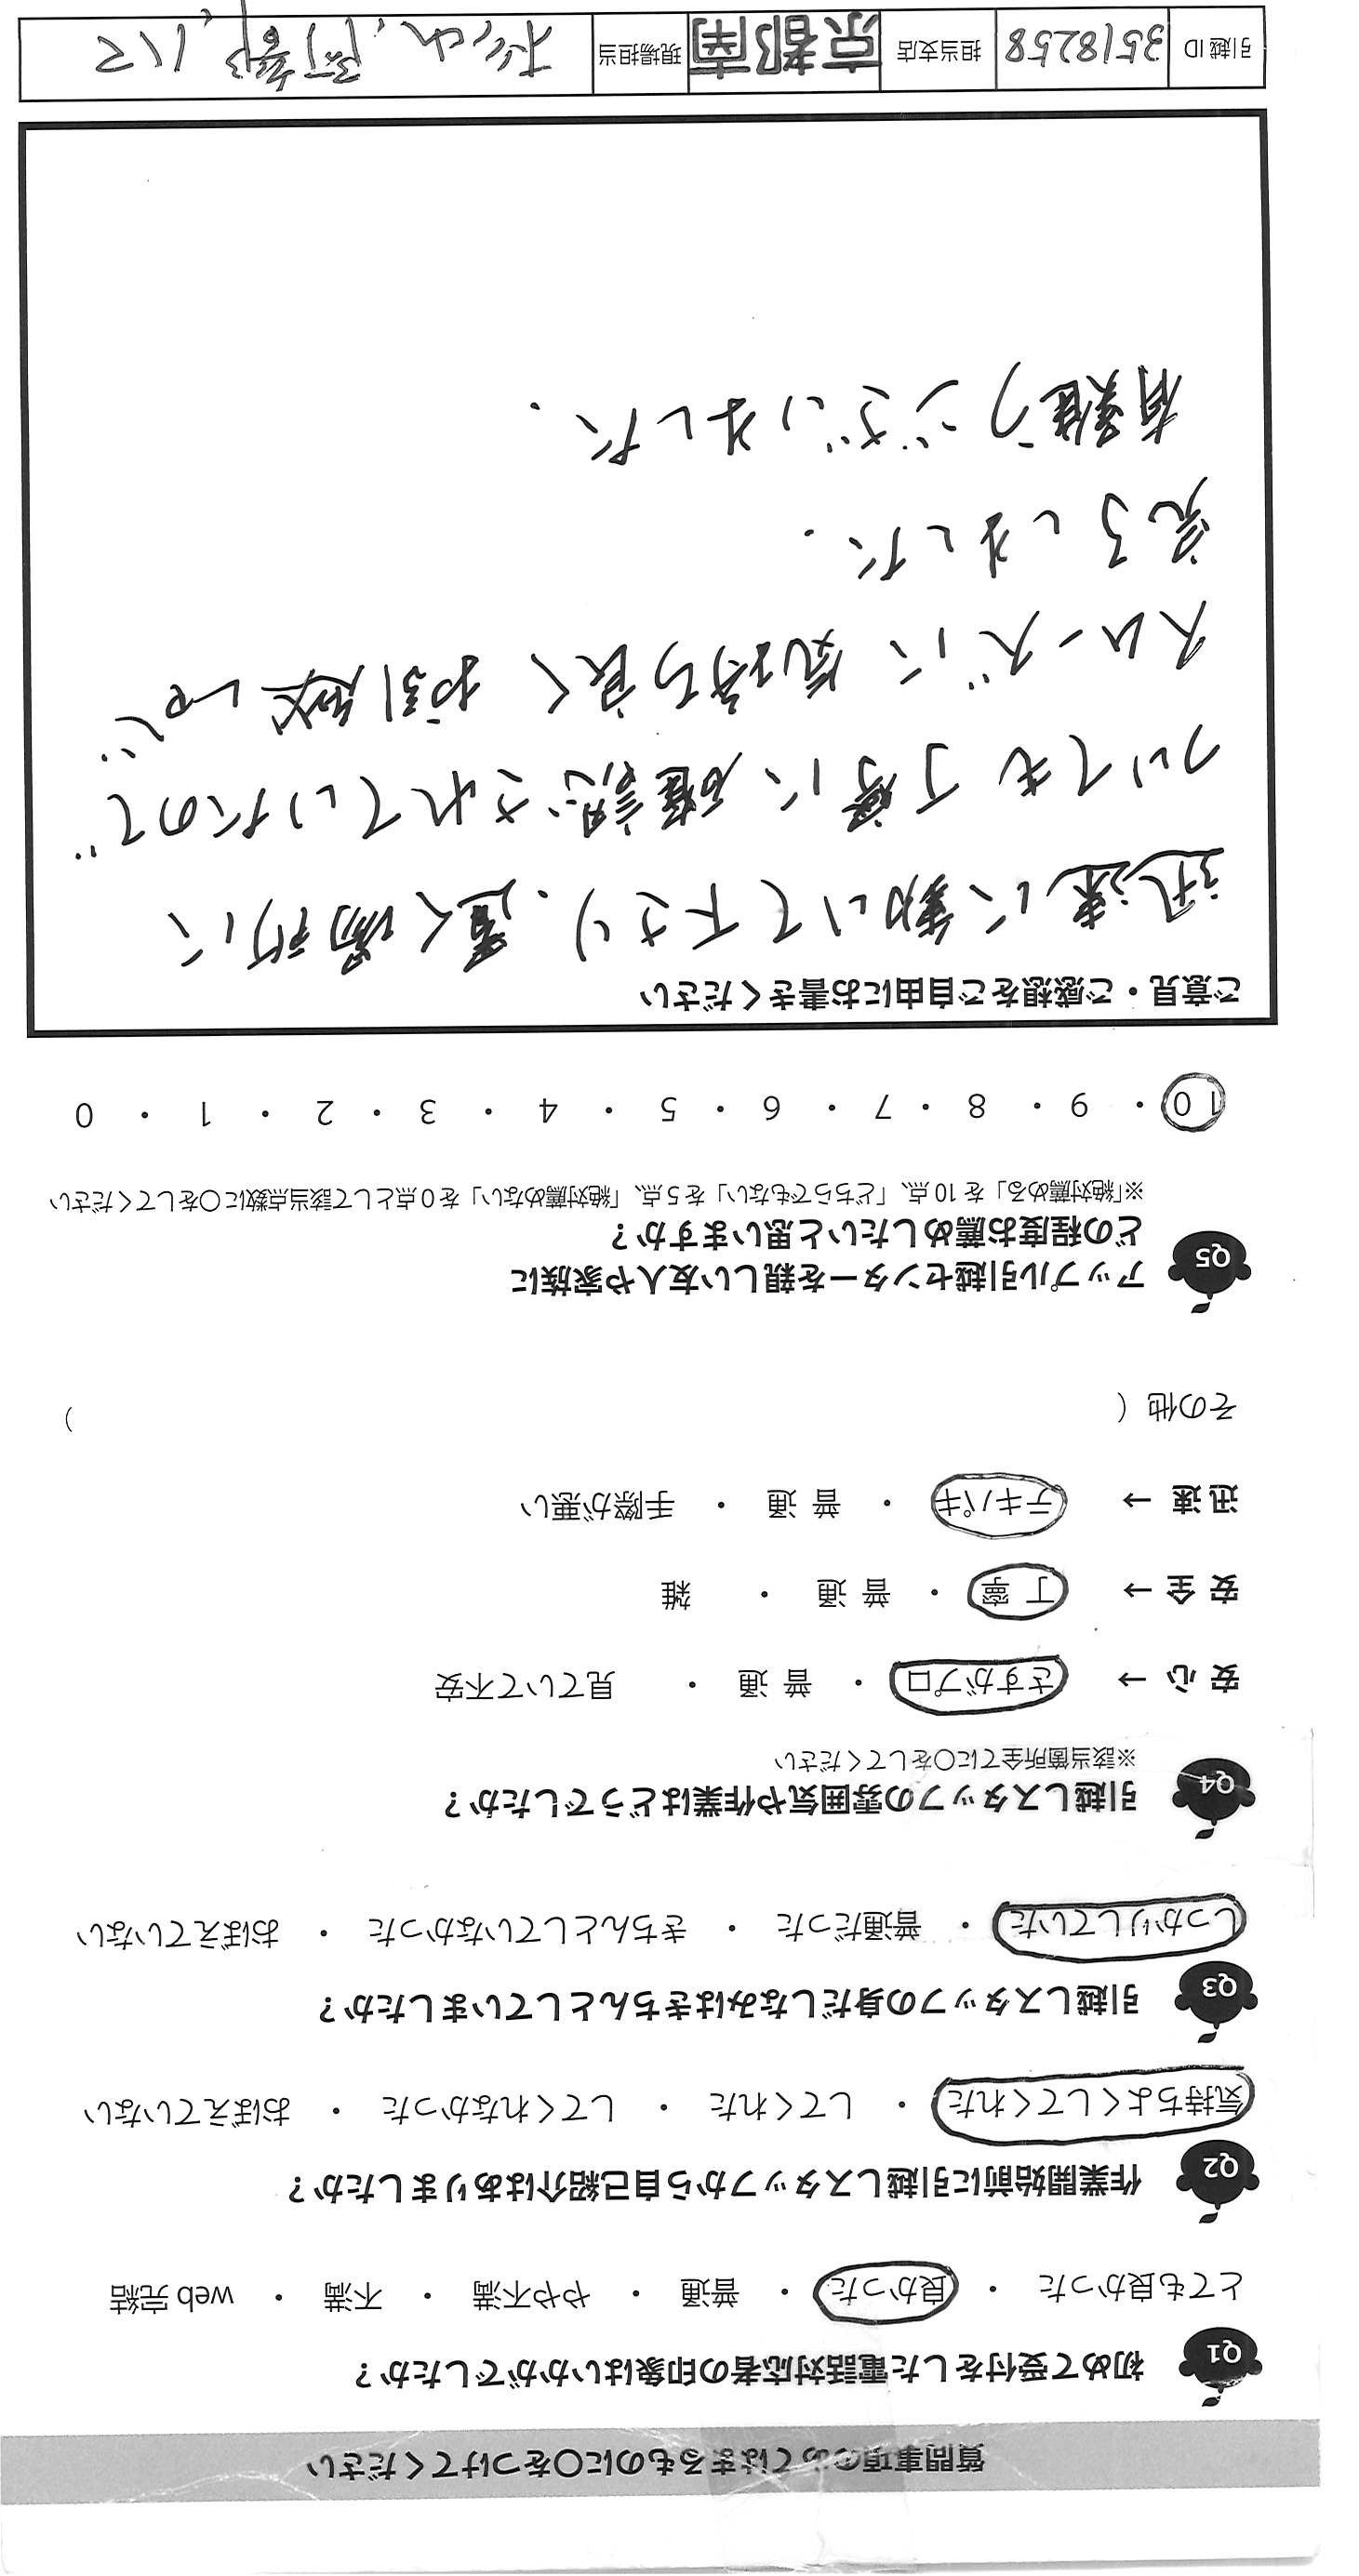 質問事項のあてはまるものに〇をつけてください
Q1 初めて受付をした電話対応者の印象はいかがでしたか？
とても良かった ・ 良かった ・ 普通 ・ やや不満 ・ 不満 ・ web 完結
Q2 作業開始前に引越しスタッフから自己紹介はありましたか？
気持ちよくしてくれた ・ してくれた ・ してくれなかった ・ おぼえていない
Q3 引越しスタッフの身だしなみはきちんとしていましたか？
しっかりしていた ・ 普通だった ・ きちんとしていなかった ・ おぼえていない
Q4 引越しスタッフの雰囲気や作業はどうでしたか？
※該当箇所全てに〇をしてください
安心 → さすがプロ ・ 普通 ・ 見ていて不安
安全 → 丁寧 ・ 普通 ・ 雑
迅速 → テキパキ ・ 普通 ・ 手際が悪い
その他（ ）
Q5 アップル引越センターを親しい友人や家族に
どの程度お薦めしたいと思いますか？
※「絶対薦める」を 10 点、「どちらでもない」を 5 点、「絶対薦めない」を 0 点として該当点数に〇をしてください
10 ・ 9 ・ 8 ・ 7 ・ 6 ・ 5 ・ 4 ・ 3 ・ 2 ・ 1 ・ 0
ご意見・ご感想をご自由にお書きください
迅速に動いて下さり、置く場所に
ついても丁寧に確認されていたので
スムーズに気持ち良くお引越しが
完了しました.
有難うございました.
引越 ID 3518258 担当支店 京都南 現場担当 松山、阿部、ハマ